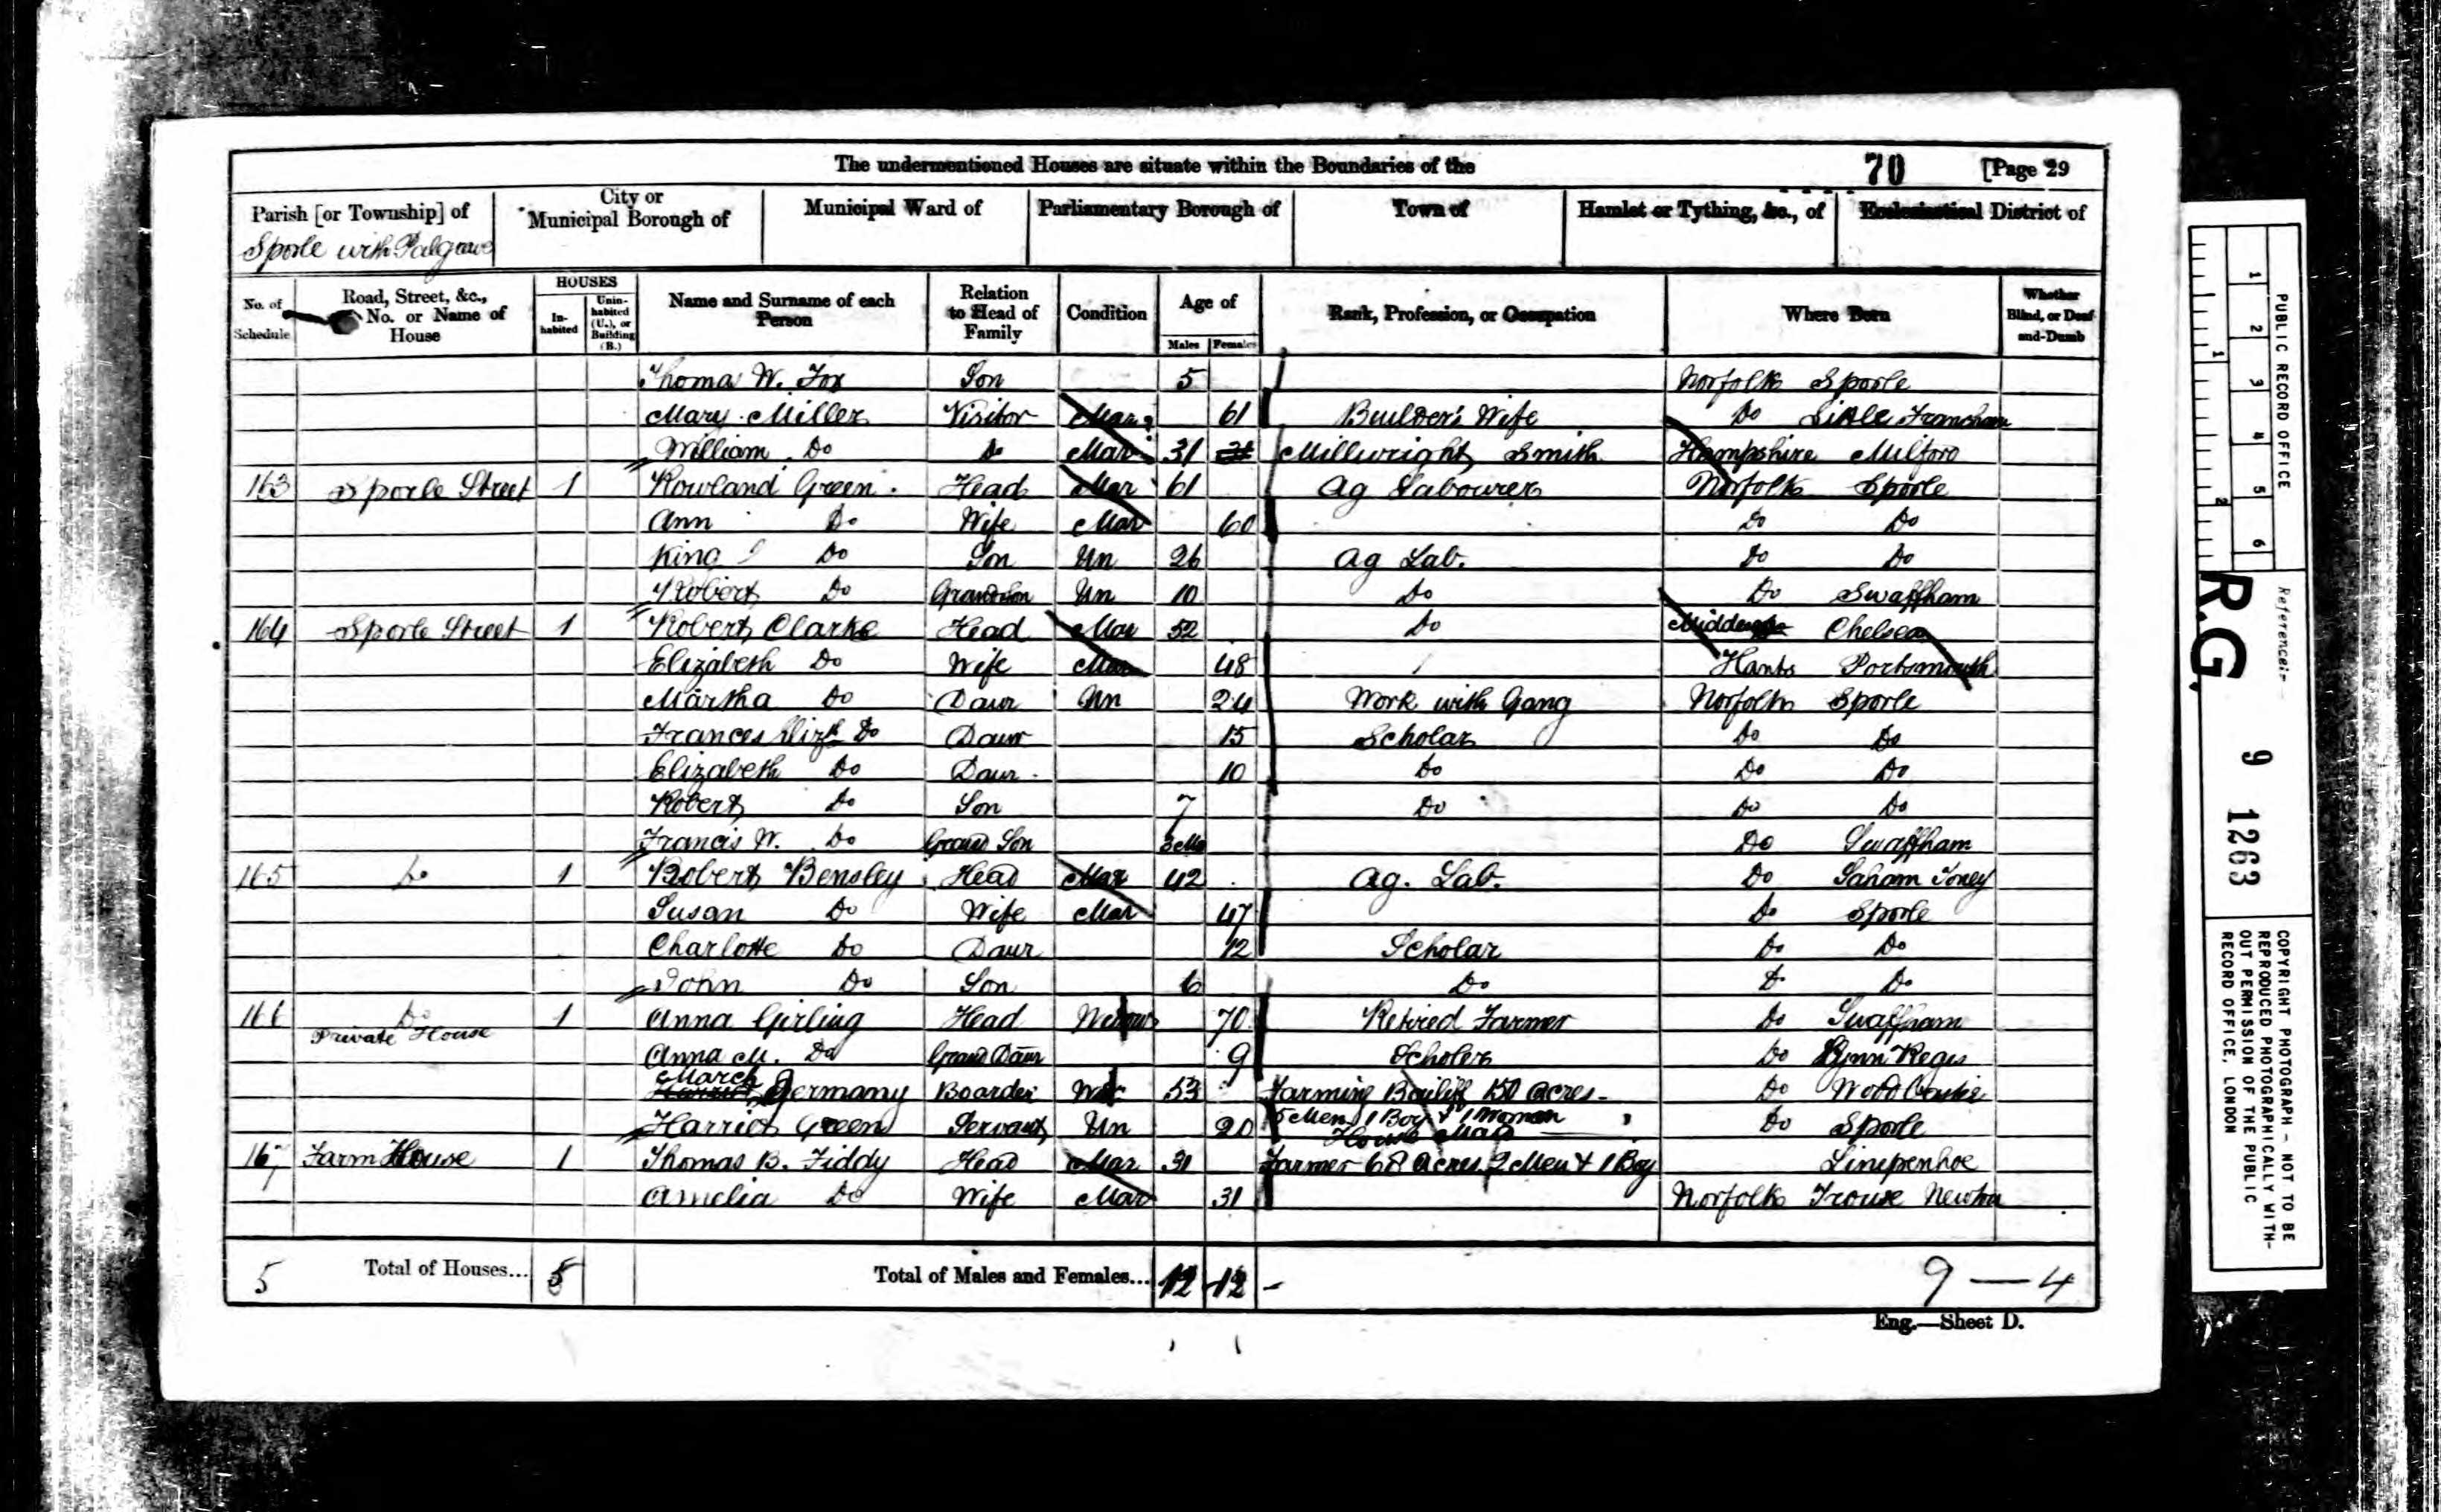 The undermentioned Houses are situate within the Boundaries of the 70 [Page 29
Parish [or Township] of City or Municipal Borough of Municipal Ward of Parliamentary Borough of Town of Hamlet or Tything, &c., of Ecclesiastical District of
Sporle with Palgrave
No. of Schedule Road, Street, &c., No. or Name of House HOUSES Inhabited Uninhabited (U.), or Building (B.) Name and Surname of each Person Relation to Head of Family Condition Age of Males Females Rank, Profession, or Occupation Where Born Whether Blind, or Deaf-and-Dumb
Thomas W. Fox Son 5 Norfolk Sporle
Mary Miller Visitor Mar 61 Builder's Wife Do Little Fransham
William Do Do Mar 31 Millwright Smith Hampshire Milford
163 Sporle Street 1 Rowland Green Head Mar 61 Ag Labourer Norfolk Sporle
Ann Do Wife Mar 60 Do Do
King Do Son Un 26 Ag Lab. Do Do
Robert Do Grandson Un 10 Do Do Swaffham
164 Sporle Street 1 Robert Clarke Head Mar 52 Do Middlesex Chelsea
Elizabeth Do Wife Mar 48 Hants Portsmouth
Martha Do Daur Un 24 Work with Gang Norfolk Sporle
Frances Elizth Do Daur 15 Scholar Do Do
Elizabeth Do Daur 10 Do Do Do
Robert Do Son 7 Do Do Do
Francis W. Do Grand Son 3 Mo Do Swaffham
165 Do 1 Robert Bensley Head Mar 42 Ag. Lab. Do Saham Toney
Susan Do Wife Mar 47 Do Sporle
Charlotte Do Daur 12 Scholar Do Do
John Do Son 6 Do Do Do
166 Do Private House 1 Anna Girling Head Widow 70 Retired Farmer Do Swaffham
Anna M. Do Grand Daur 9 Scholar Do Lynn Regis
March Germany Boarder 53 Farming Bailiff 150 Acres Do
5 Men 1 Boy & 1 Woman
Harriet Green Servant Un 20 House Maid Do Sporle
167 Farm House 1 Thomas B. Fiddy Head Mar 31 Farmer 68 Acres 2 Men & 1 Boy Limpenhoe
Amelia Do Wife Mar 31 Norfolk Trowse Newton
5 Total of Houses... 5 Total of Males and Females... 12 12 9 — 4
Eng.—Sheet D.
1 2 3 4 5 6
1 2
PUBLIC RECORD OFFICE
Reference:-
R.G. 9 1263
COPYRIGHT PHOTOGRAPH - NOT TO BE
REPRODUCED PHOTOGRAPHICALLY WITH-
OUT PERMISSION OF THE PUBLIC
RECORD OFFICE, LONDON